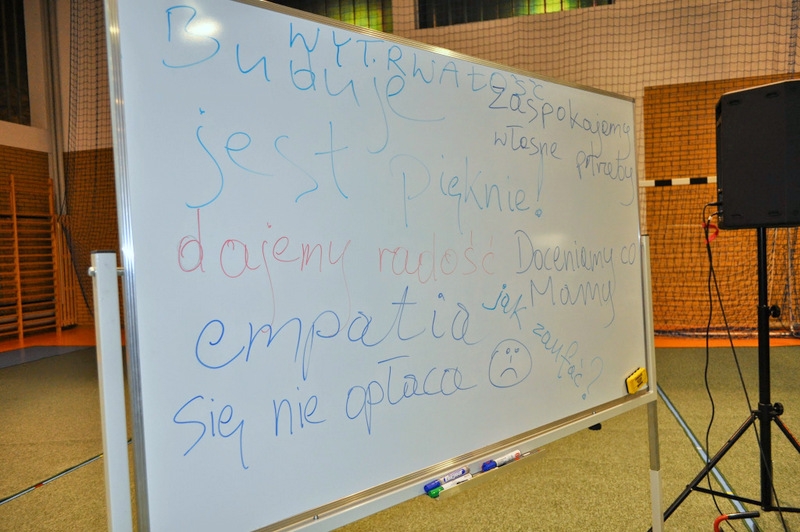 Buduje
WYTRWAŁOŚĆ
Zaspokajamy
własne potrzeby
jest pięknie!
dajemy radość
Doceniamy co
Mamy
empatia
się nie opłaca
jak zaufać?